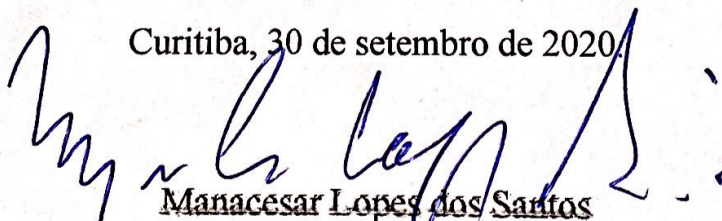 Curitiba, 30 de setembro de 2020.
Manacesar Lopes dos Santos